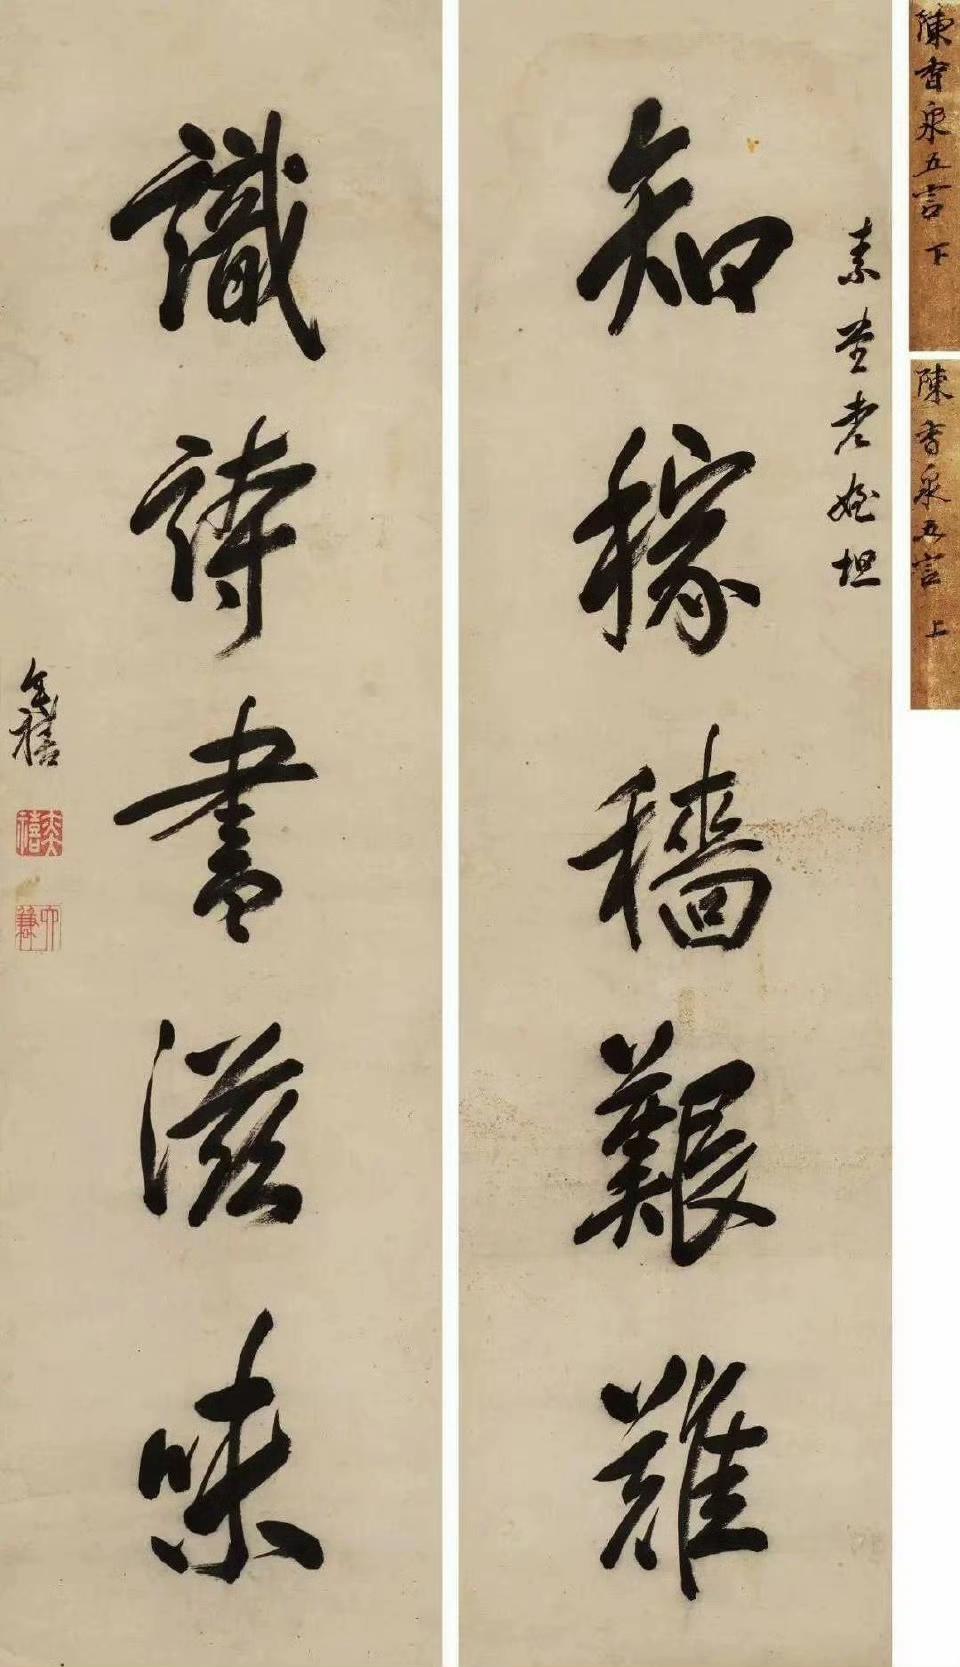 陳香泉五言 下
陳香泉五言 上
素堂老姪坦
知稼穡艱難
識詩書滋味
奕禧
奕禧
六謙